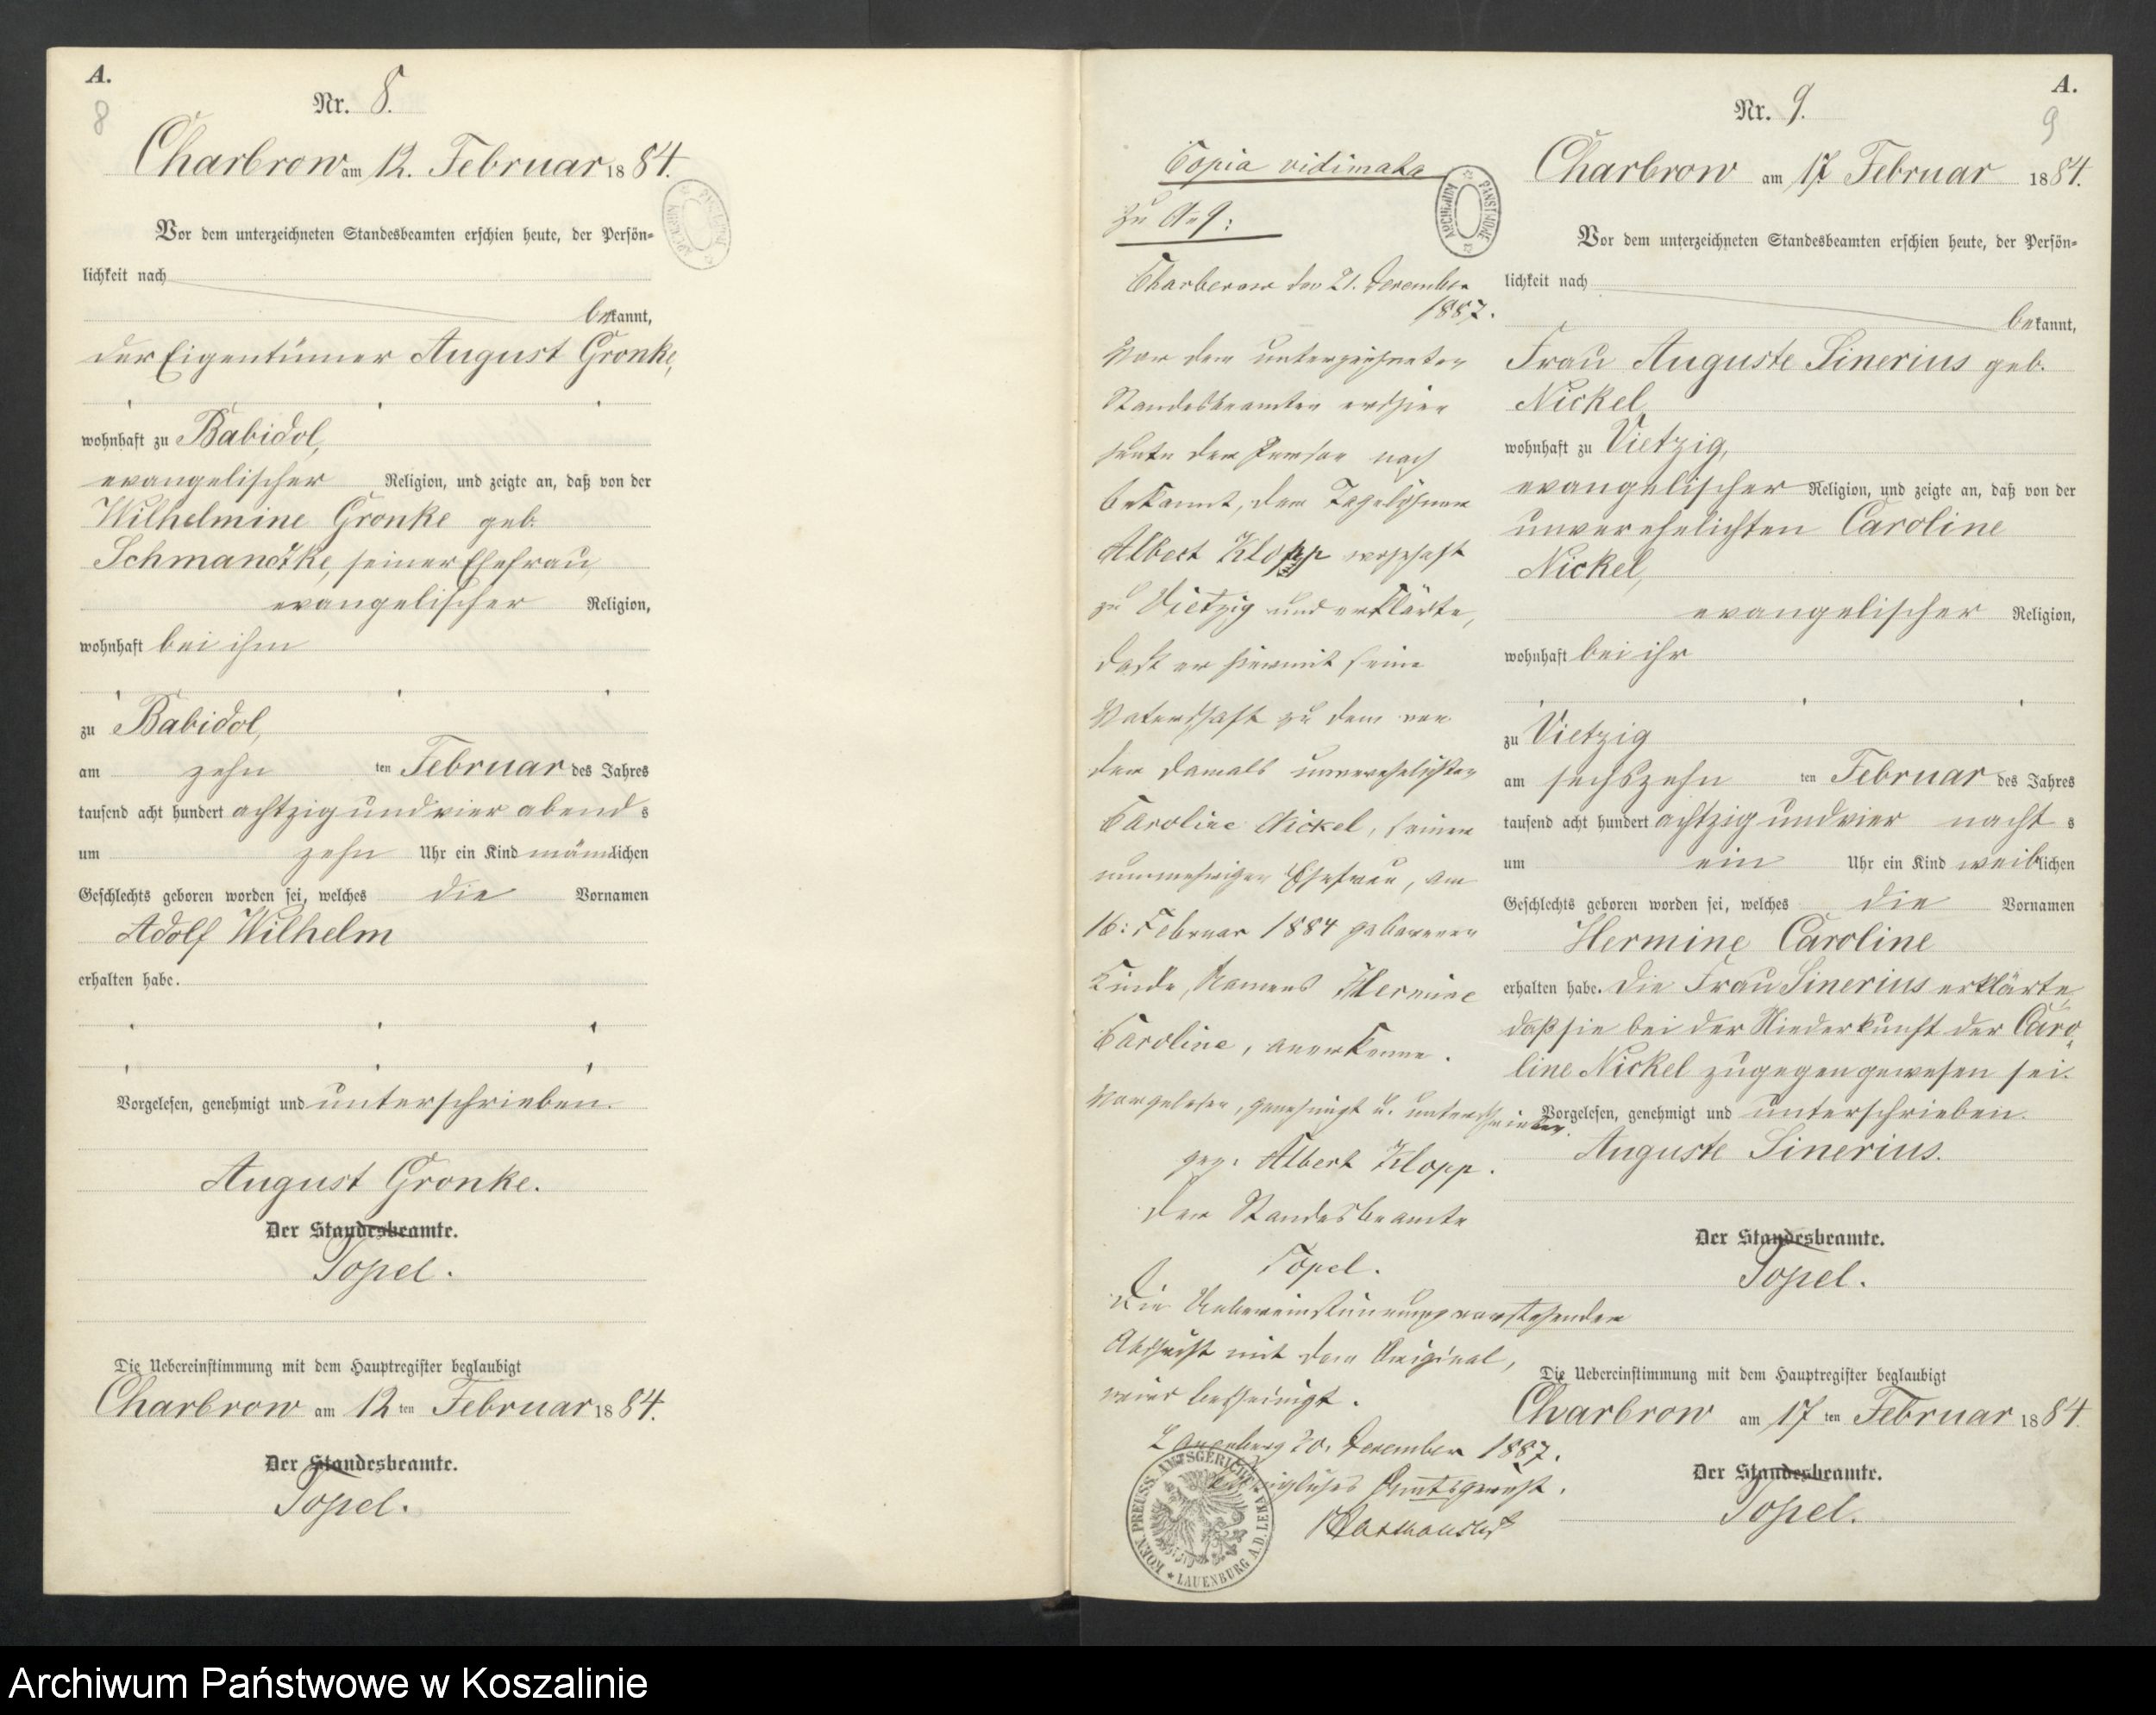 A.
8
Nr. 8.
Charbrow am 12. Februar 1884.
Vor dem unterzeichneten Standesbeamten erschien heute, der Persön-
lichkeit nach
bekannt,
der Eigentümer August Gronke,
wohnhaft zu Babidol,
evangelischer Religion, und zeigte an, daß von der
Wilhelmine Gronke geb.
Schmandtke, seiner Ehefrau
evangelischer Religion,
wohnhaft bei ihm
zu Babidol,
am zehn ten Februar des Jahres
tausend acht hundert achtzig und vier abends
um zehn Uhr ein Kind männlichen
Geschlechts geboren worden sei, welches die Vornamen
Adolf Wilhelm
erhalten habe.
Vorgelesen, genehmigt und unterschrieben.
August Gronke.
Der Standesbeamte.
Topel.
Die Uebereinstimmung mit dem Hauptregister beglaubigt
Charbrow am 12 ten Februar 1884.
Der Standesbeamte.
Topel.
Copia vidimata
zu No 9:
Charbrow den 21. Dezember
1887.
Vor dem unterzeichneten
Standesbeamten erschien
heute der Person nach
bekannt, der Tagelöhner
Albert Klopp wohnhaft
zu Vietzig und erklärte,
daß er hiermit seine
Vaterschaft zu dem von
der damals unverehelichten
Caroline Nickel, seiner
nunmehrigen Ehefrau, am
16: Februar 1884 geborenen
Kinde, Namens Hermine
Caroline, anerkenne.
Vorgelesen, genehmigt u. unterschrieben.
gez. Albert Klopp.
Der Standesbeamte
Topel.
Die Uebereinstimmung vorstehender
Abschrift mit dem Original,
wird bescheinigt.
Lauenburg 30. Dezember 1887.
Königliches Amtsgericht.
KOEN. PREUSS. AMTSGERICHT LAUENBURG A.D. LEBA
ARCHIWUM PAŃSTWOWE
A.
9
Nr. 9.
Charbrow am 17 Februar 1884.
Vor dem unterzeichneten Standesbeamten erschien heute, der Persön-
lichkeit nach
bekannt,
Frau Auguste Sinerius geb.
Nickel,
wohnhaft zu Vietzig,
evangelischer Religion, und zeigte an, daß von der
unverehelichten Caroline
Nickel,
evangelischer Religion,
wohnhaft bei ihr
zu Vietzig
am sechszehn ten Februar des Jahres
tausend acht hundert achtzig und vier nachts
um ein Uhr ein Kind weiblichen
Geschlechts geboren worden sei, welches die Vornamen
Hermine Caroline
erhalten habe. Die Frau Sinerius erklärte,
daß sie bei der Niederkunft der Caro-
line Nickel zugegen gewesen sei.
Vorgelesen, genehmigt und unterschrieben.
Auguste Sinerius.
Der Standesbeamte.
Topel.
Die Uebereinstimmung mit dem Hauptregister beglaubigt
Charbrow am 17 ten Februar 1884.
Der Standesbeamte.
Topel.
Archiwum Państwowe w Koszalinie